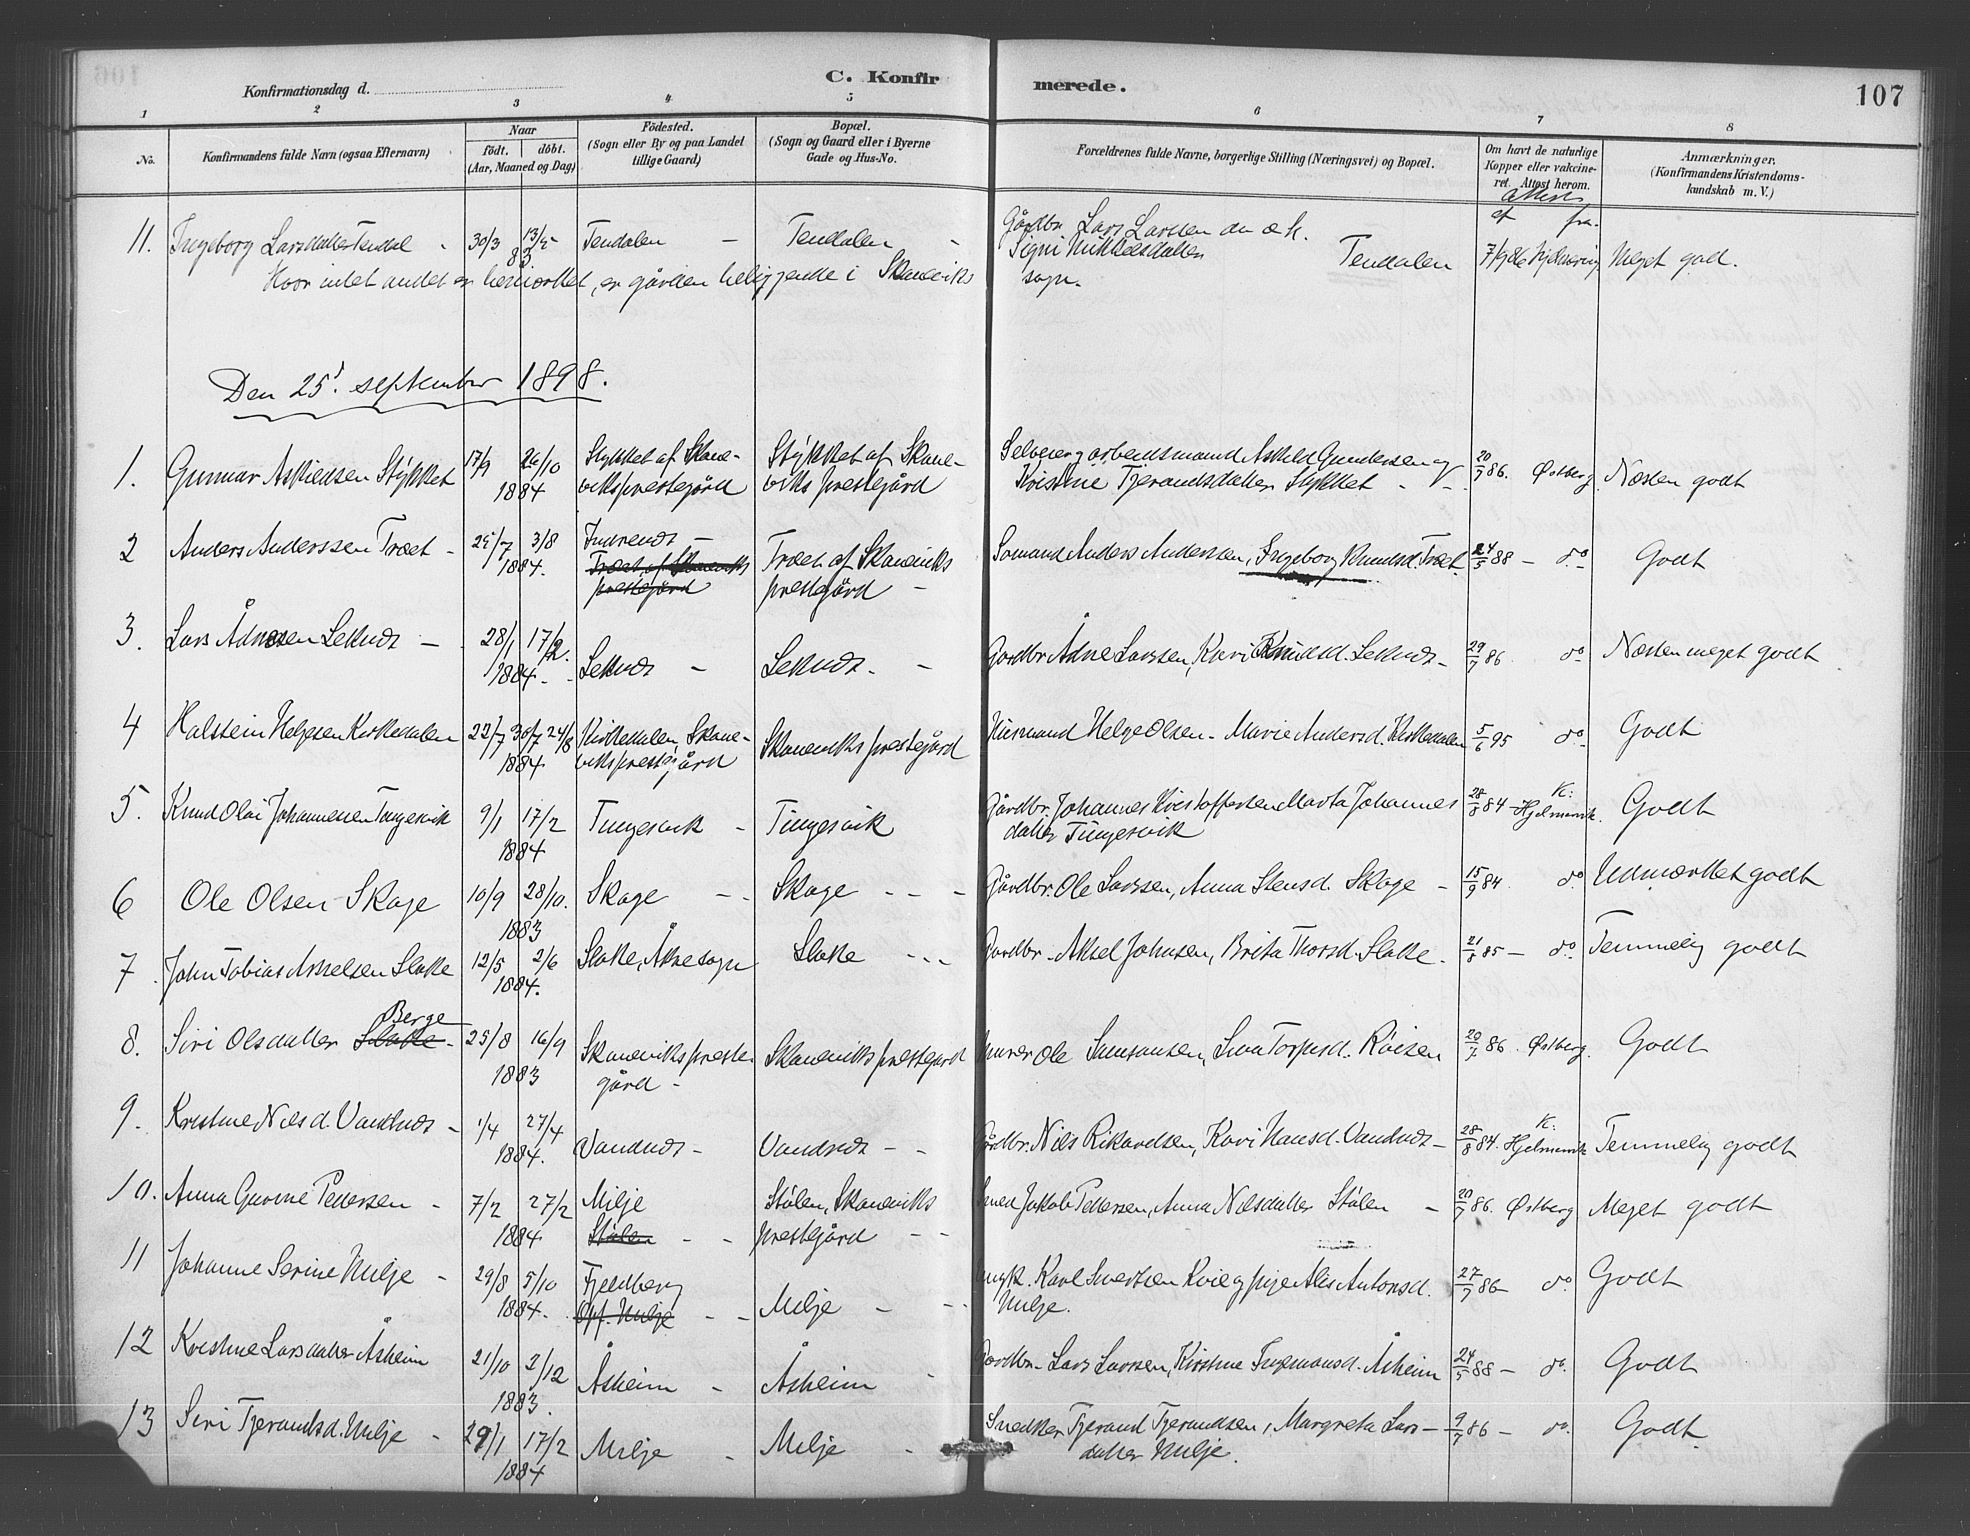 C. Konfirmerede.
107
Konfirmationsdag d.
1 2 3 4 5 6 7 8
No.
Konfirmandens fulde Navn (ogsaa Efternavn)
Naar
født. døbt.
(Aar, Maaned og Dag)
Fødested.
(Sogn eller By og paa Landet
tillige Gaard)
Bopæl.
(Sogn og Gaard eller i Byerne
Gade og Hus-No.
Forældrenes fulde Navne, borgerlige Stilling (Næringsvei) og Bopæl.
Om havt de naturlige
Kopper eller vakcine-
ret. Attest herom.
Anmærkninger.
(Konfirmandens Kristendoms-
kundskab m. V.)
Attest
af fra
11. Ingeborg Larsdatter Tendal - 30/3 13/5 83 Tendalen - Tendalen - Gårdbr. Lars Larssen og h. Signi Mikkelsdatter Tendalen 7/9 86 Meget god.
Hvor intet andet er bemærket, er gården beliggende i Skaneviks sogn.
Den 25. september 1898.
1. Gunnar Askjedsen Stykket 17/9 26/10 1884 Stykket af Skaneviks prestegård Stykket af Skaneviks prestegård Selveier og arbeidsmand Askild Gundersen og Kristine Tjerandsdatter Stykket - - 20/7 86. Østberg. Næsten godt
2 Anders Anderssen Træet - 25/7 3/8 1884. Træet af Skaneviks prestegård Træet af Skaneviks prestegård - Sømand Anders Anderssen, Ingeborg Knudsd. Træet 24/5 88 - do Godt
3. Lars Ådnesen Leknes - 28/1 17/2. 1884. - Leknes - Leknes - Gårdbr. Ådne Larssen, Kari Knudsd. Leknes - 29/7 86 do Næsten meget godt
4 Halstein Helgesen Kirkedalen 22/7 30/7 24/8 1884 Kirkedalen, Skaneviks prestegård Skaneviks prestegård Husmand Helge Olsen - Marie Andersd. Kirkedalen 5/6 95 do Godt
5. Knud Olai Johannesen Tungesvik 9/1 17/2 1884 Tungesvik - Tungesvik Gårdbr. Johannes Kristoffersen Marta Johannesdatter Tungesvik 28/8 84 - K: Hjelmervik. Godt
6 Ole Olsen Skage 10/9 28/10. 1883 Skage - - Skage - - - Gårdbr. Ole Larssen, Anna Stensd. Skage - 15/9 84 do Udmærket godt
7 John Tobias Akselsen Slake 12/5 2/6 1884. Slake, Åkre sogn Slake - - - Gårdbr. Aksel Johnsen, Brita Thorsd. Slake. 21/8 85 - do Temmelig godt
8. Siri Olsdatter Slake Berge - 25/8 16/9 1883 Skaneviks prestegård - Skaneviks prestegård Murer Ole Samsonsen, Siva Torpsd. Røisen 20/7 86. Østberg. Godt
9. Kristine Nilsd. Vandnes - 1/4 27/4 1884. Vandnes - Vandnes - - Gårdbr. Nils Rikardsen, Kari Hansd. Vandnes - 28/8 84. K: Hjelmervik Temmelig godt
10. Anna Gurine Pedersen - 7/2 27/2 1884 Milje Stølen - - Stølen, Skaneviks prestegård - - Smed Jakob Pedersen, Anna Nilsdatter Stølen - 20/7 86. Østberg Meget godt
11 Johanne Serine Milje - 29/8 5/10 1884. Fjeldberg Opf. Milje - - Milje - - - Ungk. Karl Sivertsen Kvie og pige Alis Antonsd. Milje. 27/7 86 - do Godt
12 Kristine Larsdatter Åsheim 21/10 2/12 1883. Åsheim - Åsheim - Gårdbr. Lars Larssen, Kirstine Ingemansd. Åsheim 24/5 88 - do. Godt
13 Siri Tjerandsd. Milje - 29/1 17/2 1884 Milje - Milje - Snedker Tjerand Tjerandsen, Margreta Larsdatter Milje. 9/7 86 - do. Godt